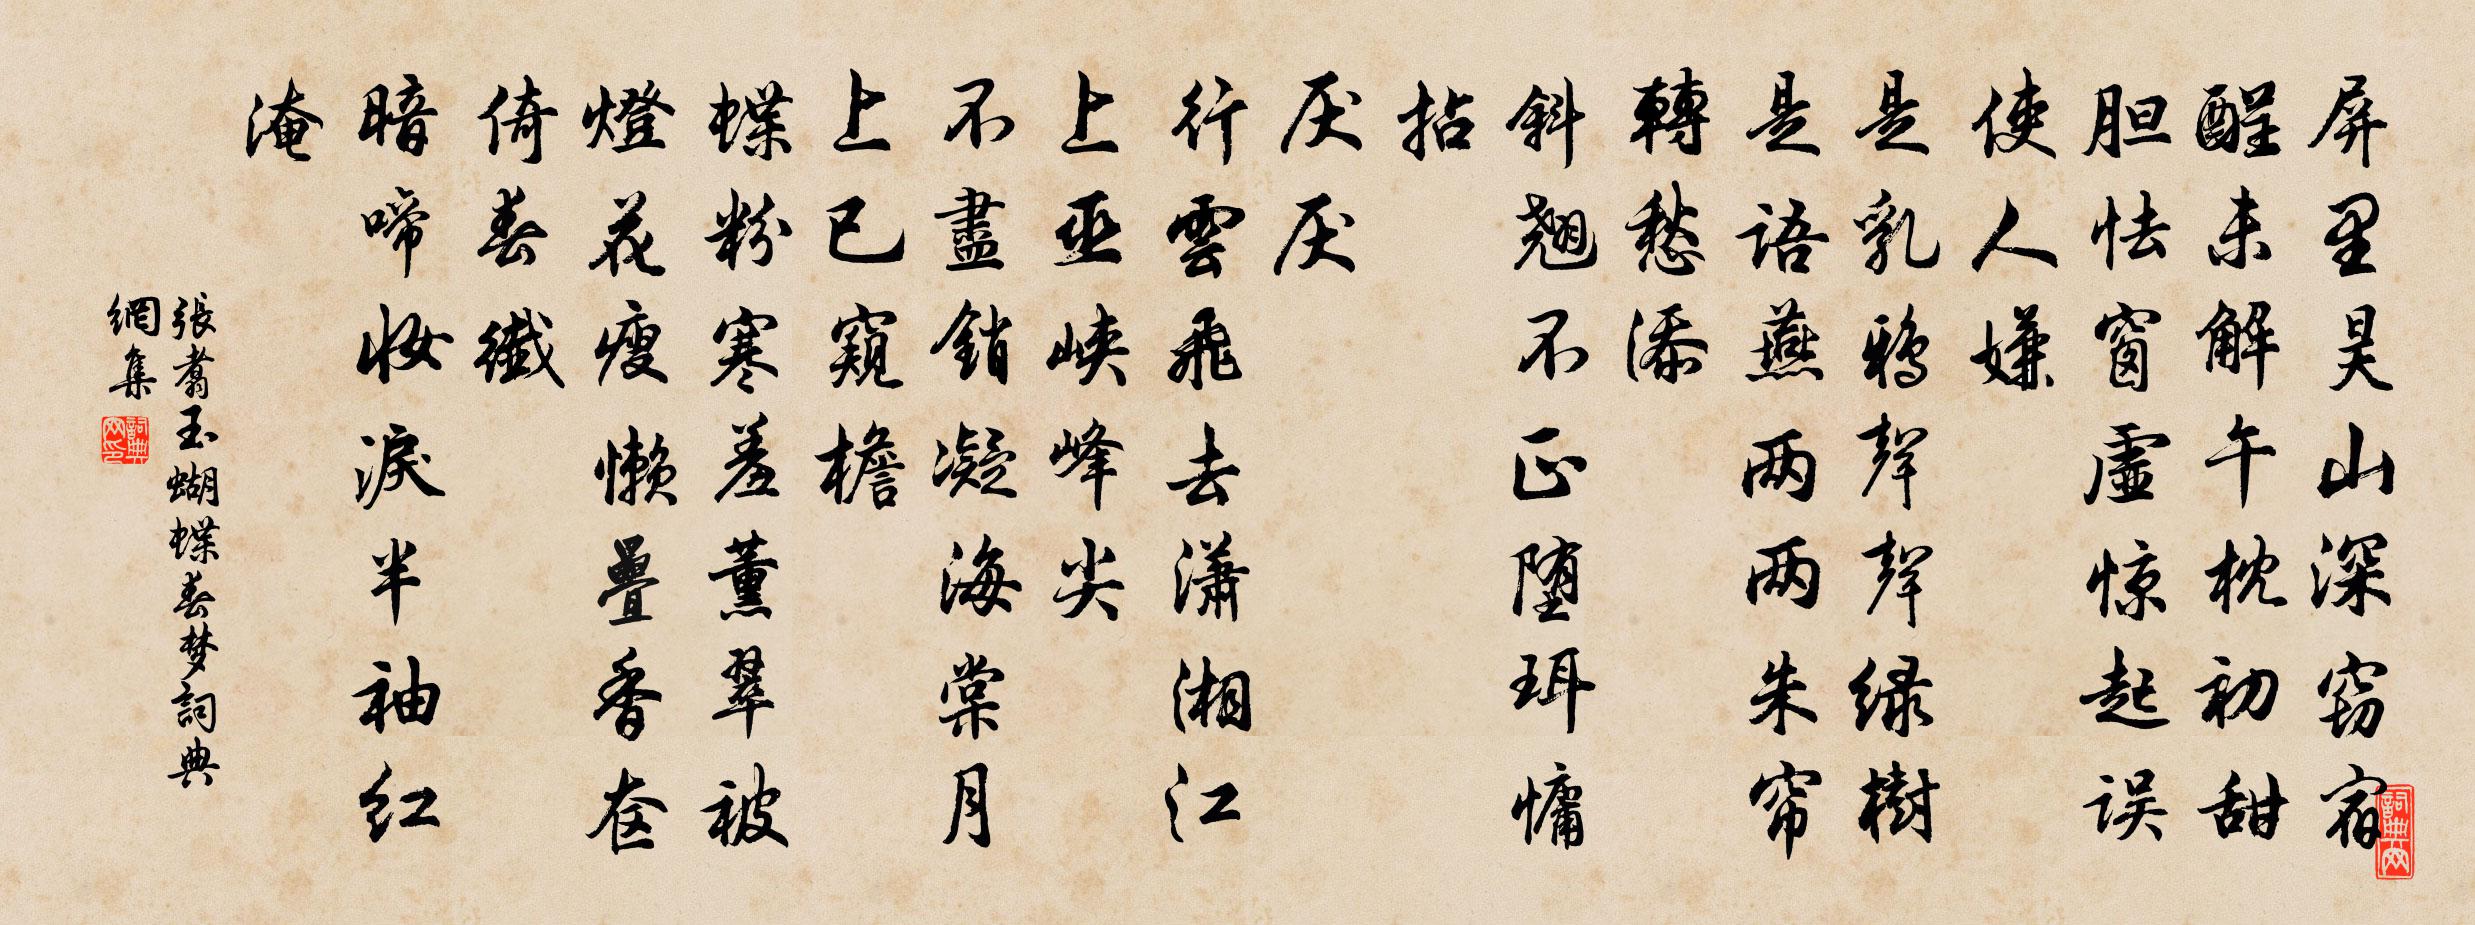 屏里吴山深窈窅
醒未解午枕初甜
胆怯窗虚惊起误
使人嫌
是乳鸦聲聲绿樹
是语燕两两朱帘
轉愁添
斜翘不正堕珥慵
拈
厌厌
行雲飛去潇湘江
上巫峡峰尖
不盡銷凝海棠月
上已窺檐
蝶粉寒羞薰翠被
燈花瘦懒疊香奁
倚春纖
暗啼妆淚半袖红
淹
張翥玉蝴蝶春梦詞典
網集
詞典网印
詞典网